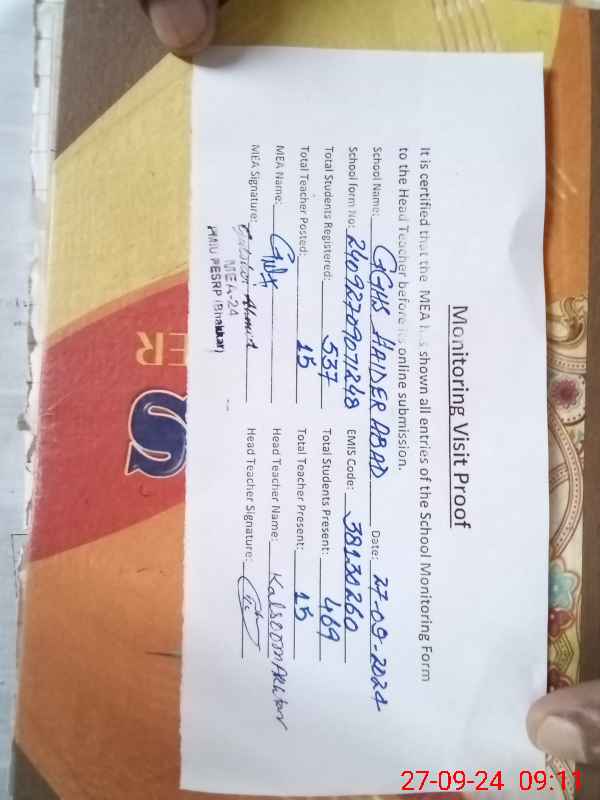 Monitoring Visit Proof
It is certified that the MEA has shown all entries of the School Monitoring Form
to the Head Teacher before its online submission.
School Name: GGHS HAIDER ABAD Date: 27-09-2024
School form No: 24092709071248 EMIS Code: 38130260
Total Students Registered: 537 Total Students Present: 469
Total Teacher Posted: 15 Total Teacher Present: 15
MEA Name: Head Teacher Name: Kalsoom Akhtar
MEA Signature: Head Teacher Signature:
MEA-24
PMIU PESRP (Bhakkar)
ER
S
27-09-24 09:11